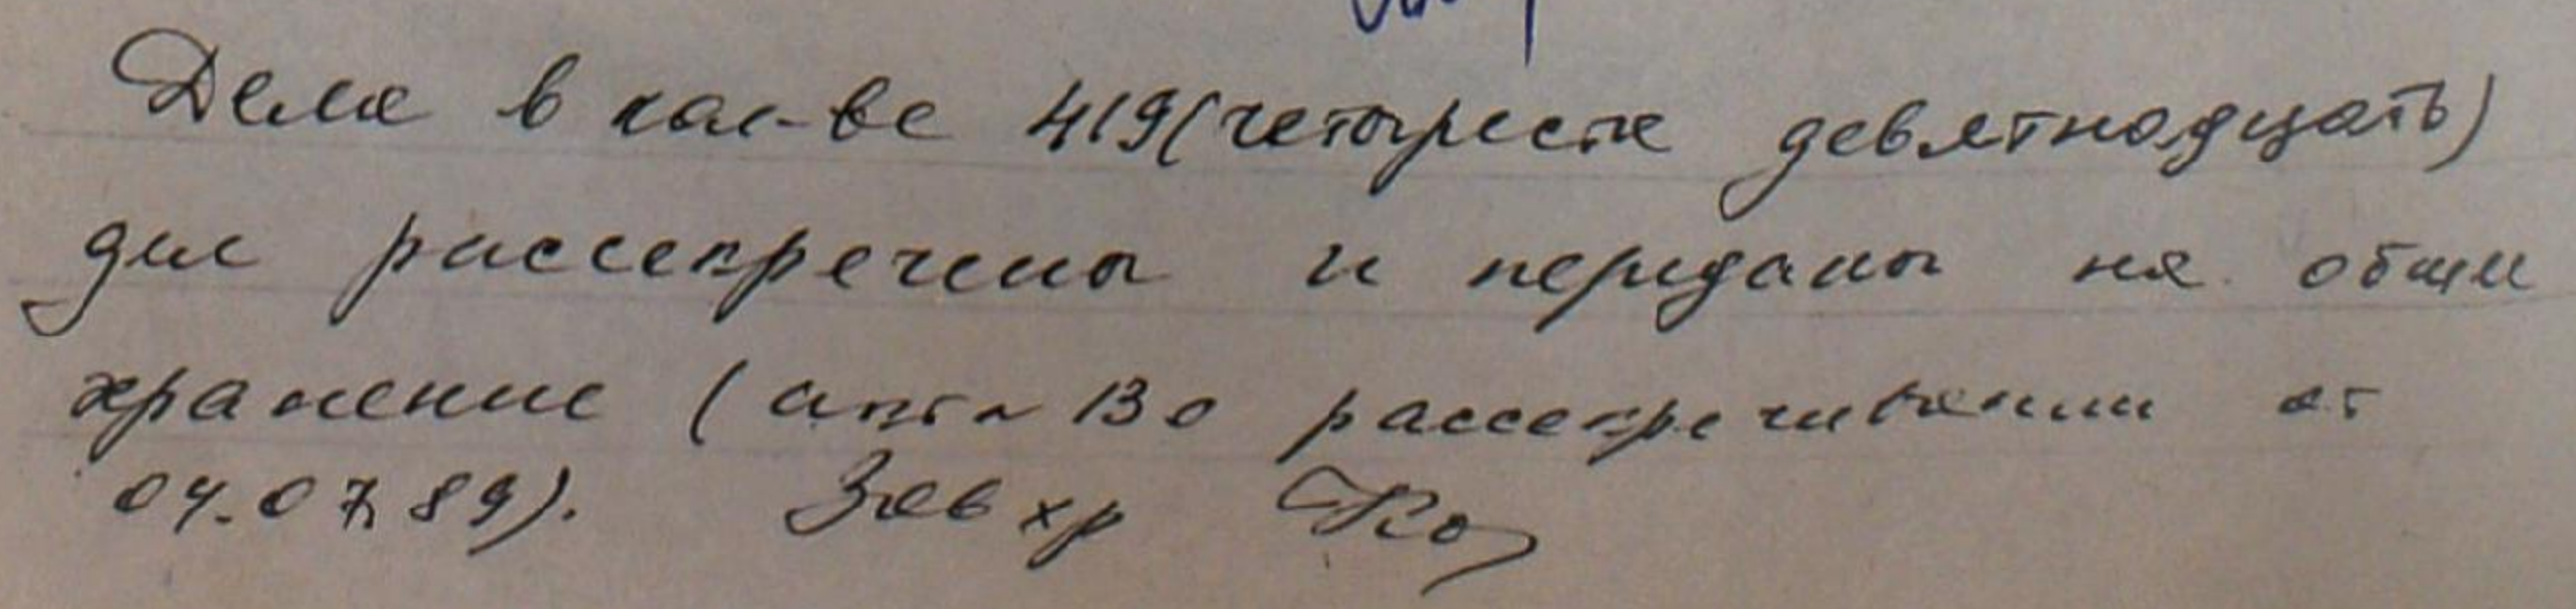 Дела в кол-ве 419 (четыреста девятнадцать)
дел рассекречены и переданы на общее
хранение (акт № 13 о рассекречивании от
04.07.89). Зав хр